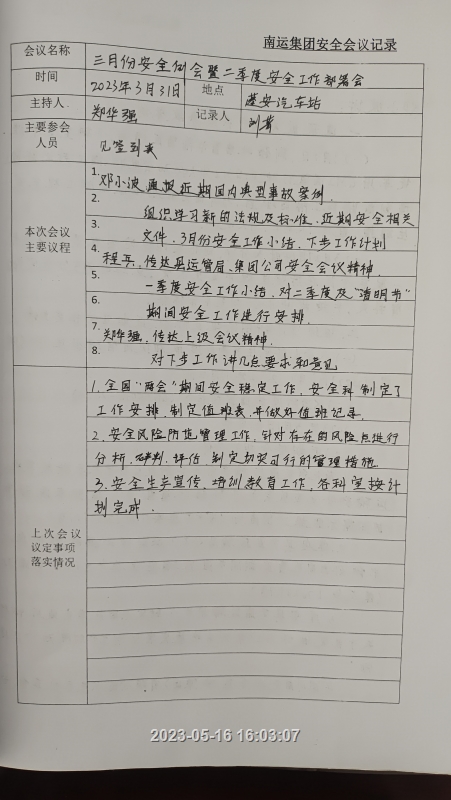 南运集团安全会议记录
会议名称 三月份安全例会暨二季度安全工作部署会
时间 2023年3月31日 地点 蓬安汽车站
主持人 郑华强 记录人
主要参会人员 见签到表
本次会议主要议程
1. 邓小波通报近期国内典型事故案例.
2. 组织学习新的法规及标准、近期安全相关
3. 文件、3月份安全工作小结、下步工作计划
4. 程兵、传达县运管局、集团公司安全会议精神.
5. 一季度安全工作小结、对二季度及"清明节"
6. 期间安全工作进行安排.
7. 郑华强、传达上级会议精神.
8. 对下步工作讲几点要求和意见
上次会议议定事项落实情况
1. 全国"两会"期间安全稳定工作, 安全科制定了
工作安排、制定值班表、并做好值班记录.
2. 安全风险防范管理工作, 针对存在的风险点进行
分析、研判、评估、制定切实可行的管理措施
3. 安全生产宣传、培训教育工作, 各科室按计
划完成.
2023-05-16 16:03:07